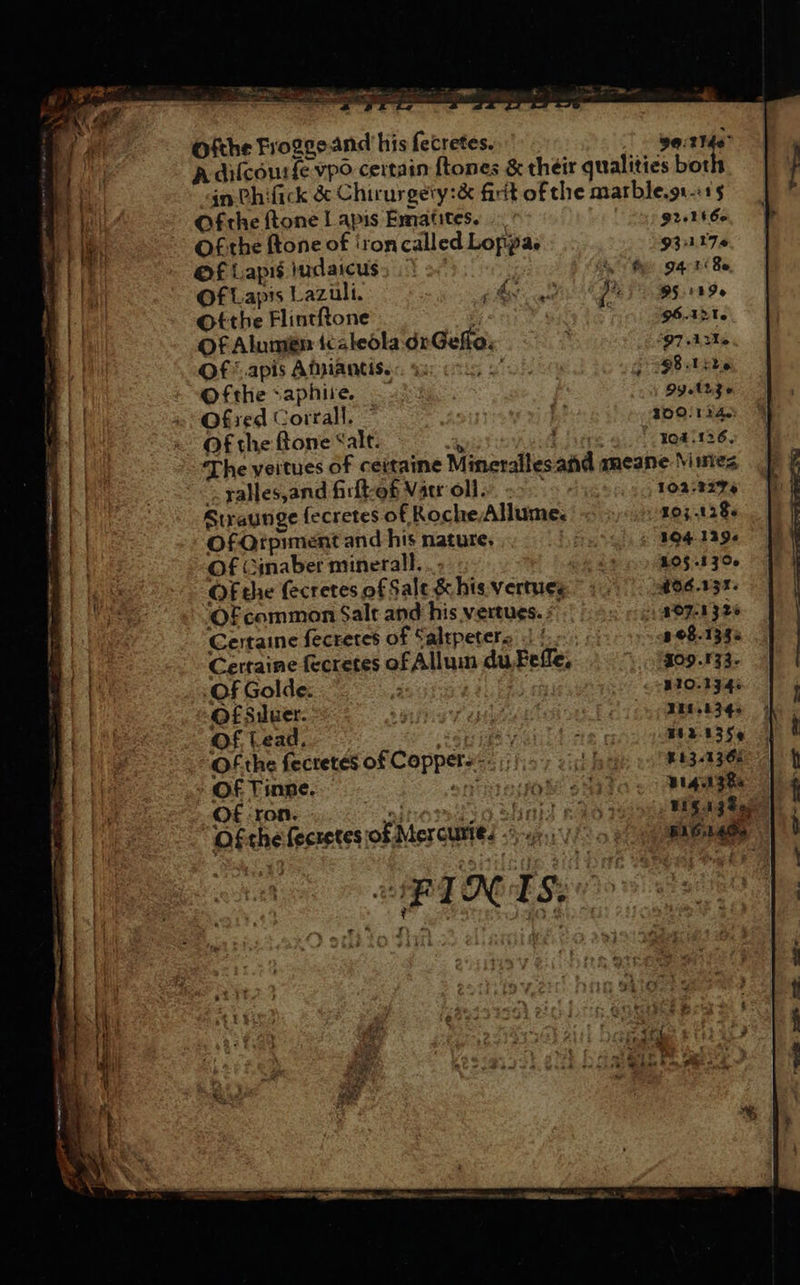 Ofthe Frogge and his ſecretes. 90.114.
A diſcourſe vpō certain ſtones & their qualities both
in Phiſick & Chirurgery: & firſt of the marble. 91.115
Of the ſtone Lapis Ematites. 92.116.
Of the ſtone of iron called Loppas 93.117.
Of Lapis iudaicus. 94.118.
Of Lapis Lazuli. 95.119.
Of the Flintſtone 96.121.
Of Alumen icaleola or Geſſo. 97.121.
Of Lapis Amiantis. 98.122.
Of the Saphire. 99.123.
Of red Corrall. 100.124.
Of the ſtone Salt. 101.126.
The vertues of certaine Mineralles and meane Mine
ralles, and firſt of Vitrioll. 102.127.
Straunge ſecretes of Roche Allume. 103.128.
Of Orpiment and his nature. 104.129.
Of Cinaber minerall. 105.130.
Of the ſecretes of Salt & his vertues. 106.131.
Of common Salt and his vertues. 107.132.
Certaine ſecretes of Saltpeter. 108.133.
Certaine ſecretes of Allum du Feſſe. 109.133.
Of Golde. 110.134.
Of Siluer. 111.134.
Of Lead. 112.135.
Of the ſecretes of Copper. 113.136.
Of Tinne. 114.138.
Of Iron. 115.138.
Of the ſecretes of Mercurie. 116.140.
FINIS.